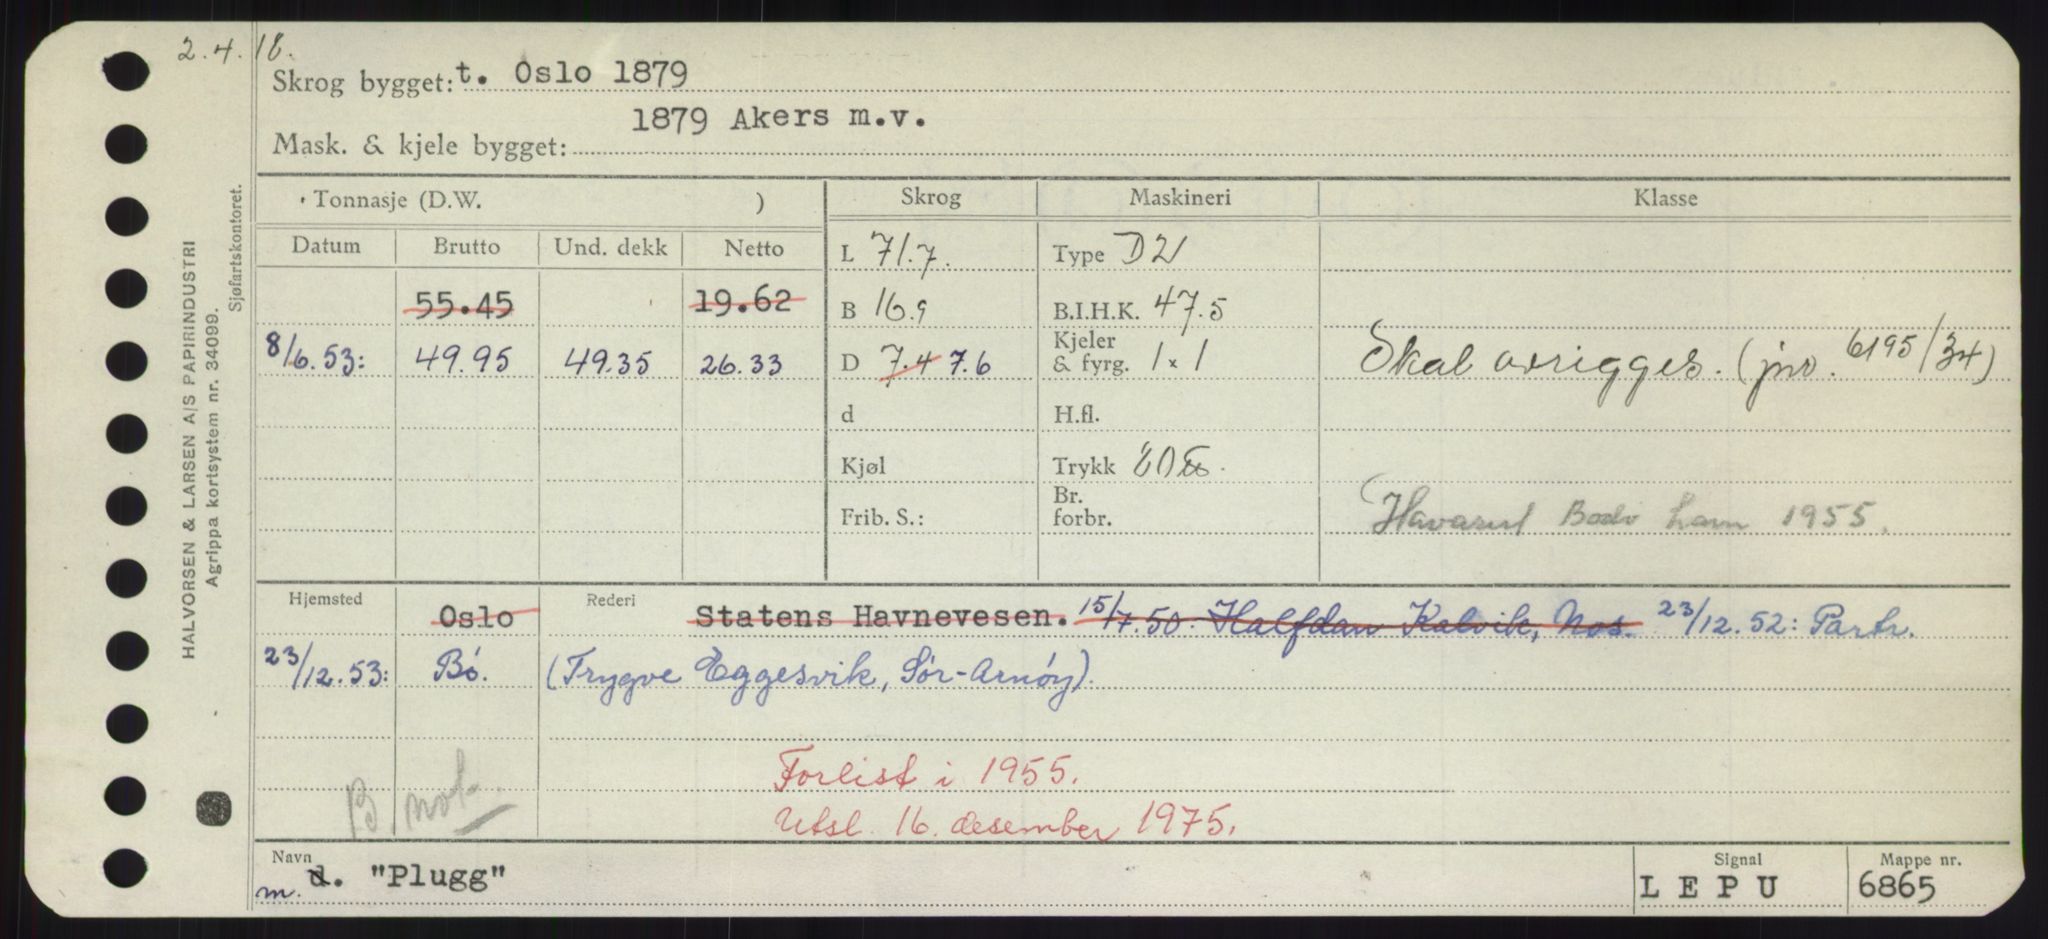 2.4.18.
Skrog bygget: t. Oslo 1879
1879 Akers m.v.
Mask. & kjele bygget:
Tonnasje (D.W. ) Skrog Maskineri Klasse
Datum Brutto Und. dekk Netto L 71.7. Type D2
55.45 19.62 B 16.9 B.I.H.K. 47.5
8/6.53: 49.95 49.35 26.33 D 7.4 7.6 Kjeler & fyrg. 1x1 Skal (jnr. 6195/34)
d H.fl.
Kjøl Trykk
Frib. S.: Br. forbr. Havarert Bodø havn 1955.
Hjemsted Oslo Rederi Statens Havnevesen. 15/7.50: Halfdan Kalvik, Nos. 23/12.52: Partr.
23/12.53: Bø. (Trygve Eggesvik, Sør-Arnøy).
Forlist i 1955.
B. not.
Utsl. 16. desember 1975.
Navn Signal Mappe nr.
m. d. "Plugg" LEPU 6865
HALVORSEN & LARSEN A/S PAPIRINDUSTRI
Agrippa kortsystem nr. 34099.
Sjøfartskontoret.